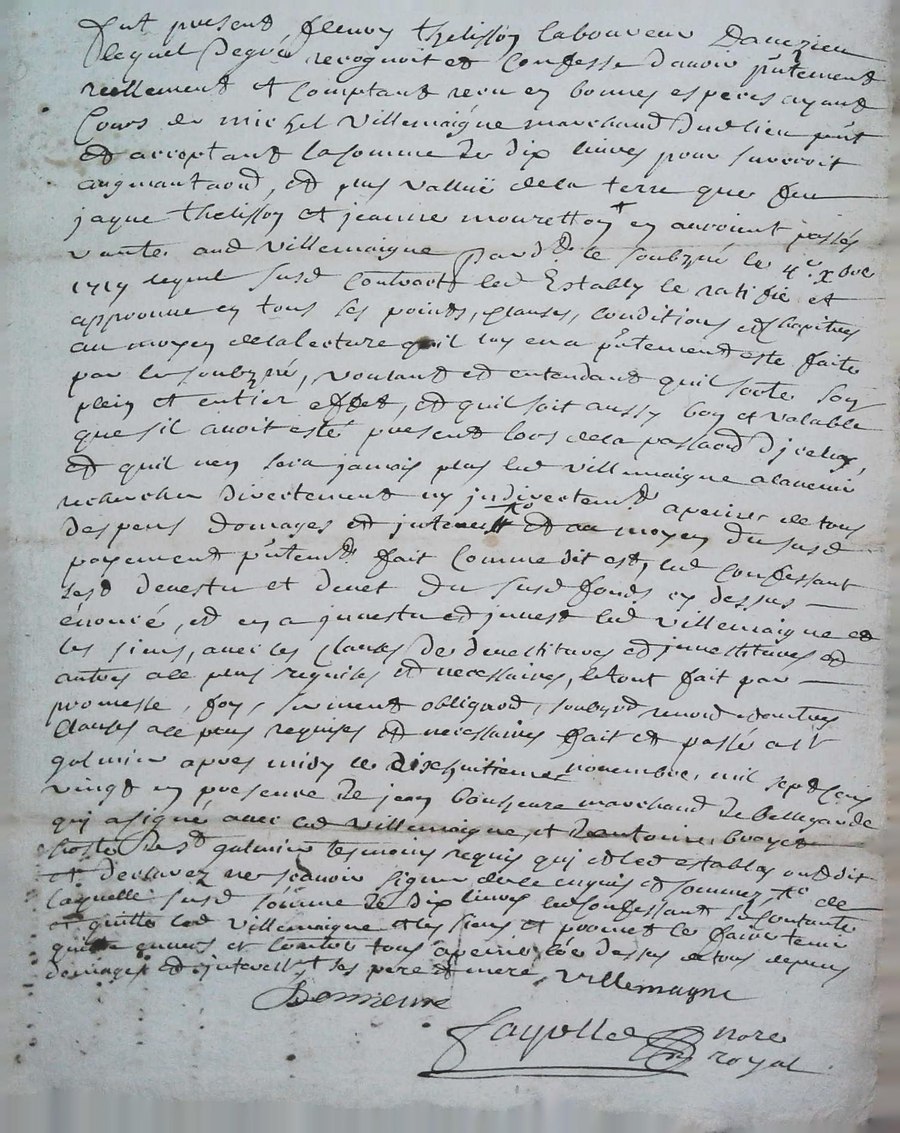 fut present, fleury thelisson laboureur Davezieu
lequel Degré recognoit et Confesse davoir p'ntement
reellement et Comptant receu en bonnes especes ayant
Cours de michel Villemaigne marchand dud lieu p'nt
et acceptant la somme de dix livres pour surcroit
augmentaon, et plus vallue de la terre que feu
jaque thelisson et jeanne mouretton + en auroient passés
vante aud Villemaigne pard't le soubz'né le 4e xbre
1719 lequel susd Contract led Establi le ratifie et
approuve en tous ses points, clauses, conditions et chapitres
au moyen de la lecture quil luy en a p'ntement esté faite
par le soubz'né, voulant et entendant quil sorte son
plein et entier effet, et quil soit aussy bon et valable
que sil avoit esté present lors de la passaon d'jceluy,
et quil nen sera jamais plus led villemaigne alavenir
rechercher directement ny jndirectem't apeine de tous
despens domages et interest et au moyen du susd
payement p'ntem't fait Comme dit est, led Confessant
sest devestu et devet du susd fonds en dessus —
énoncé, et en a jnvestu et jnvest led villemaigne et
les siens, avec les clauses de devestitures et jnvestitures et
autres ace plus requises et necessaires, le tout fait par —
promesse, foy, serment obligaon, soubz'on renon et autres
clauses ace plus requises et necessaires fait et passé a St
galmier apres midy le dixhuitieme novembre, mil sept Cens
vingt en presence de jean bonjeure marchand de Bellegarde
qui a signé avec led villemaigne, et de antoine boyer
hoste dud St galmier tesmoins requis qui et led establi ont dit
et declarez ne scavoir signer de ce enquis et sommez, +o de
laquelle susd somme de dix livres led Confessant se Contante
et quitte led villemaigne et les siens et promet le faire tenir
quitte envers et Contre tous apeine que dessus de tous depens
domages et jnterest + ses pere et mere, Villemaigne
Bonneure
fayolle nore
royal